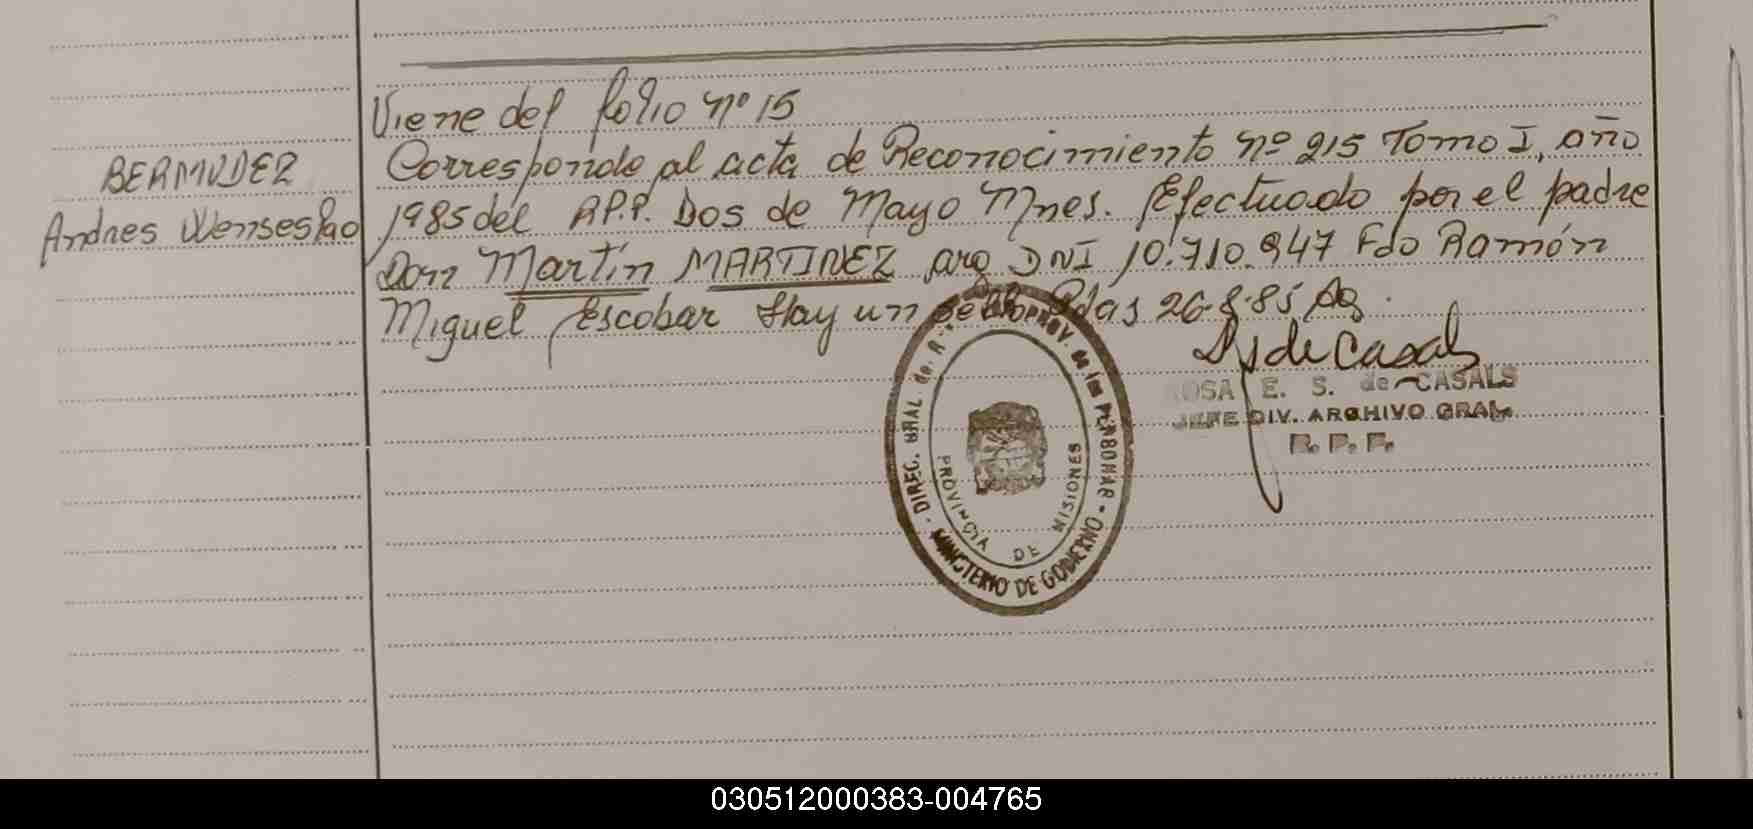 Viene del folio nº 15
BERMUDEZ
Andres Wenseslao
Corresponde al acta de Reconocimiento nº 215 Tomo I, año
1985 del R.P.P. Dos de Mayo Mnes. Efectuado por el padre
Don Martín MARTINEZ arg DNI 10.710.947 Fdo Ramón
Miguel Escobar Hay un sello Pdas 26-8-85
de Casals
ROSA E. S. de CASALS
JEFE DIV. ARCHIVO GRAL.
R. P. P.
DIREC. GRAL. de PROV. de las PERSONAS
MINISTERIO DE GOBIERNO
PROVINCIA DE MISIONES
030512000383-004765